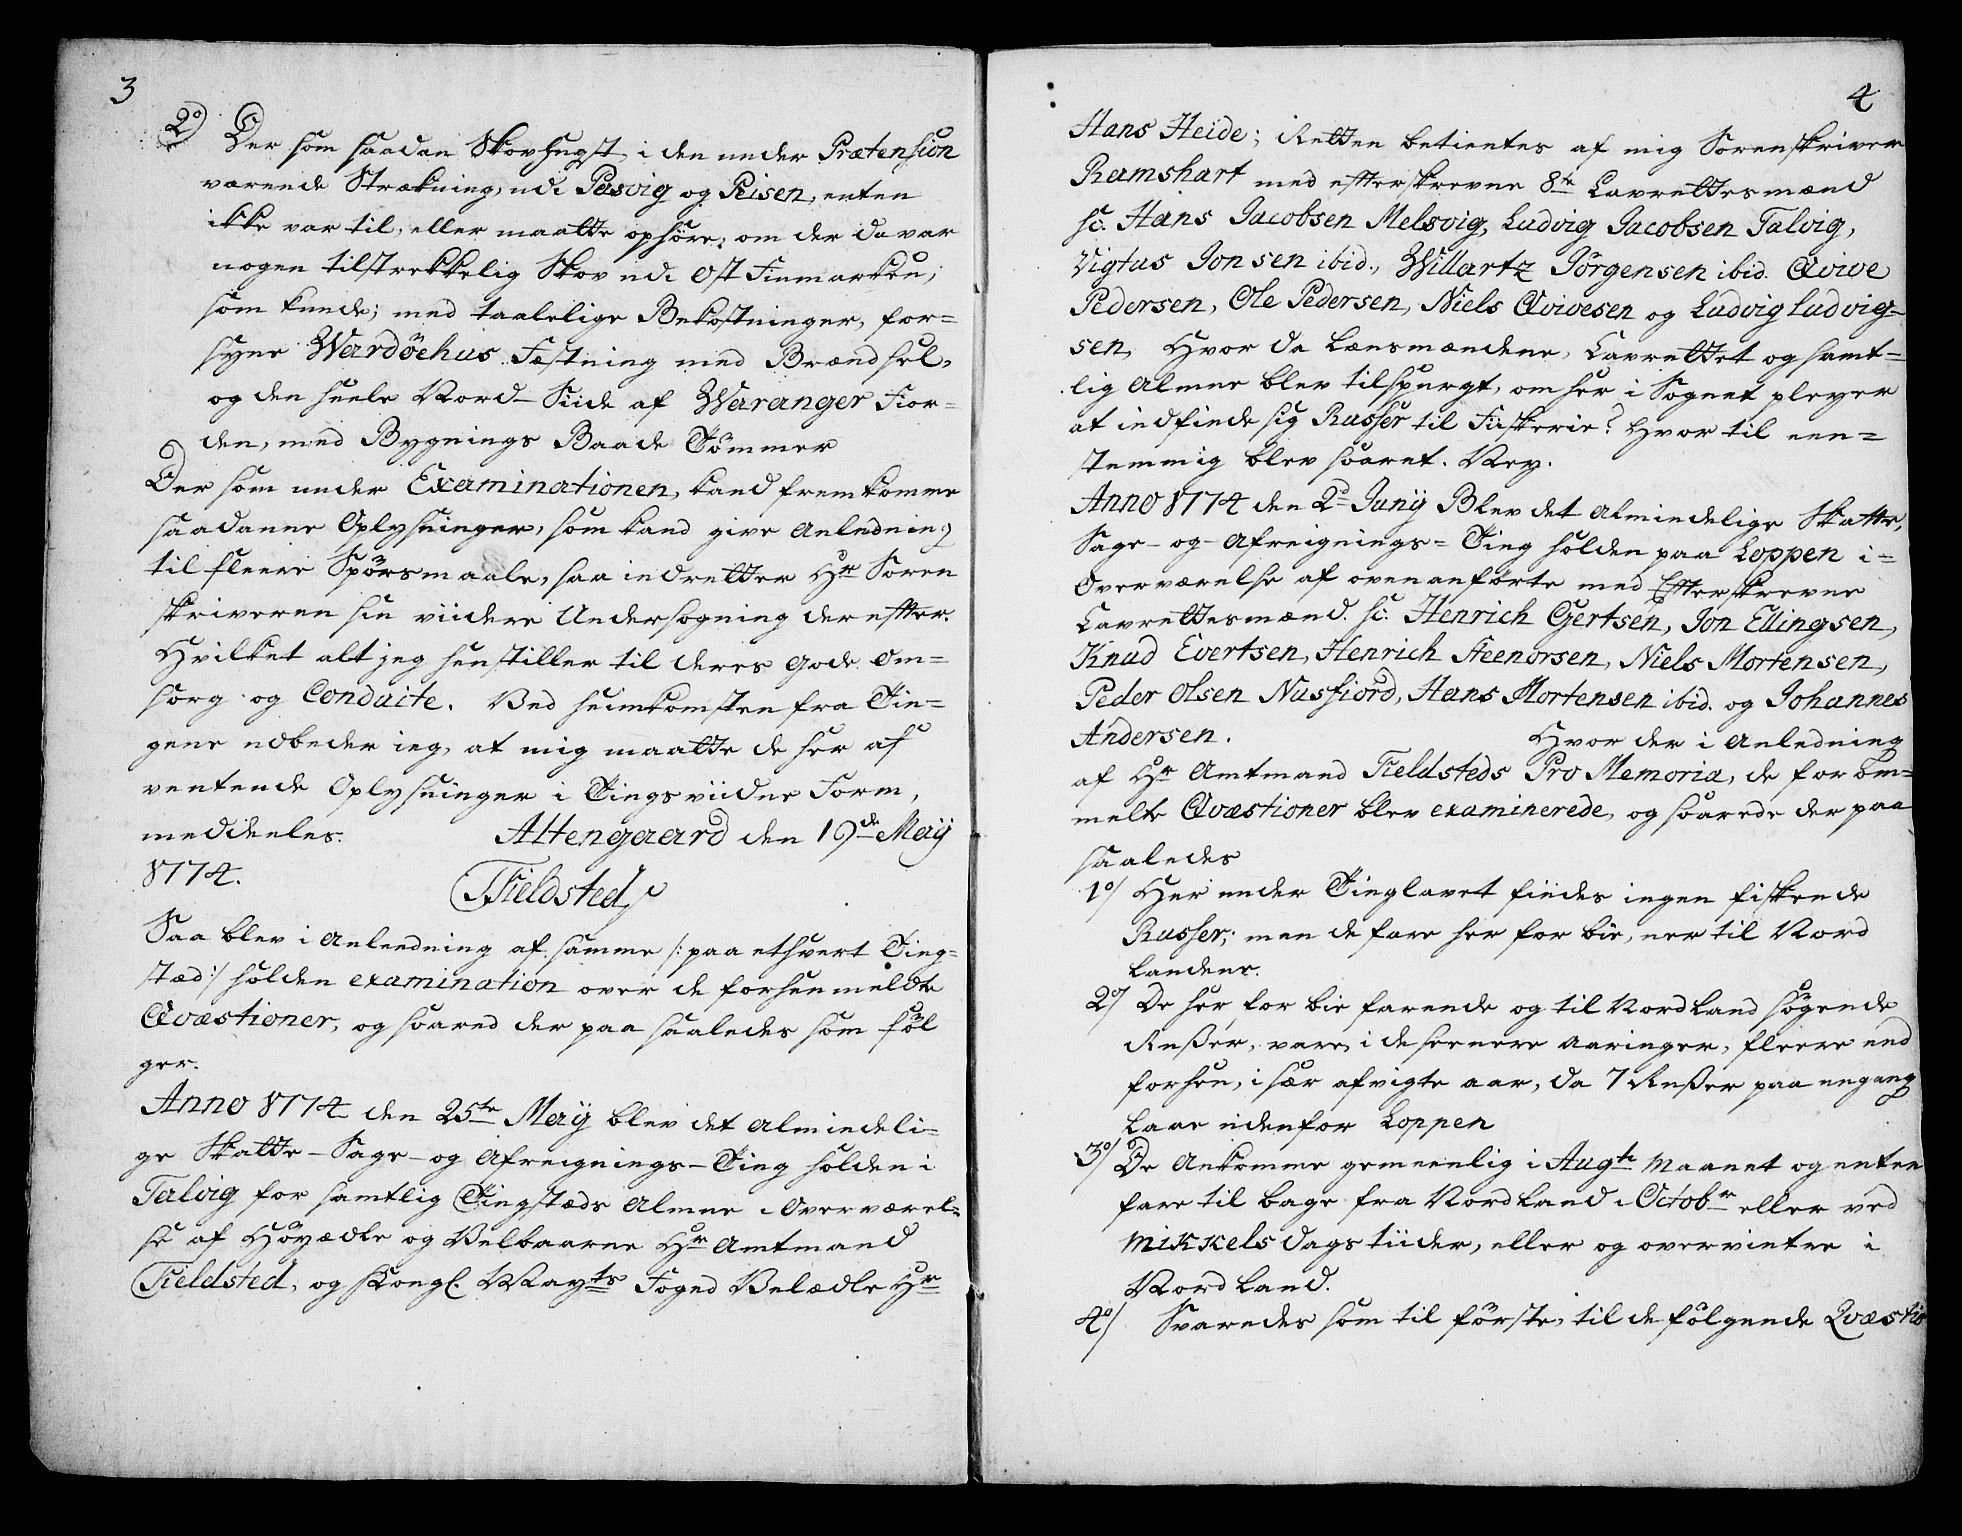 3
2o) Der som saadan Skovhugst, i den under Prætension
værende Strækning, udi Pasvig og Peisen, enten
ikke var til, eller maatte ophøre; om der da var
nogen tilstrekkelig Skov udi Ost Finmarken,
som kunde; med taalelige Bekostninger, for=
syne Wardöehus Fæstning med Brændsel,
og den heele Nord-Siide af Waranger Fior=
den, med Bygnings Baade Tömmer
Der som under Examinationen, kand fremkomme
saadanne Oplysninger, som kand give Anledning
til fleere Spörsmaale, saa indretter Hr Soren
skriveren sin viidere Undersøgning der efter.
Hvilket alt jeg henstiller til deres gode om=
sorg og Conduite. Ved hiemkomsten fra Tin=
gene udbeder ieg, at mig maatte de her af
ventende Oplysninger i Tingsviidne Form,
meddeeles. Altengaard den 19de Maÿ
1774.
Fieldsted
Saa blev i Anleedning af samme /: paa ethvert Ting=
stæd :/ holden examination over de forhenmeldte
Qvæstioner, og svared der paa saaledes som föl
ger.
Anno 1774 den 25te Maÿ blev det almindeli=
ge Skatte-Sage-og Afreignings-Ting holden i
Talvig for samtlig Tingstæds Almue i Overværel=
se af Höyædle og Velbaarne Hr Amtmand
Fieldsted, og Kongl. Mayts Foged Velædle Hr
4
Hans Heide; Retten betientes af mig Sorenskriver
Ramshart med efterskrevne 8te Laurettesmænd
sc: Hans Jacobsen Melsvig, Ludvig Jacobsen Talvig,
Vigtus Jonsen ibid., Willartz Jörgensen ibid. Qvive
Pedersen, Ole Pedersen, Niels Qvivesen og Ludvig Ludvig=
sen, Hvor da Lænsmændene, Laurettet og samt=
lig Almue blev tilspurgt, om her i Sognet pleyer
at indfinde sig Russer til Fiskerie? Hvor til een=
stemmig blev svaret. Ney.
Anno 1774 den 2d Junÿ Blev det Almindelige Skatte,
Sage-og-Afreignings=Ting holden paa Loppen i=
Overværelse af ovenanførte med Efterskrevne
Laurettesmænd. sc: Henrich Gertsen, Jon Ellingsen,
Knud Evertsen, Henrich Steenorsen, Niels Mortensen,
Peder Olsen Nusfiord, Hans Mortensen ibid. og Johannes
Andersen. Hvor der i Anledning
af Hr Amtmand Fieldsteds Pro Memoria, de for om=
melte Qvæstioner blev examinerede, og svarede der paa
saaledes
1o/ Her under Tinglavet findes ingen fiskende
Russer; men de fare her for bie, ner til Nord
Landene.
2o/ De her for bie farende og til Nordland sögende
Rußer, vare, i de seenere Aaringer, fleere end
forhen, i sær afvigte aar, da 7 Rußer paa engang
Laae udenfor Loppen
3o/ De Ankomme gemeenlig i Augti Maanet og enten
fare til bage fra Nordland i Octobr eller ved
Mikkels Dags tiider, eller og overvinter i
Nordland.
4o/ Svaredes som til förste, til de fölgende Qvæstio